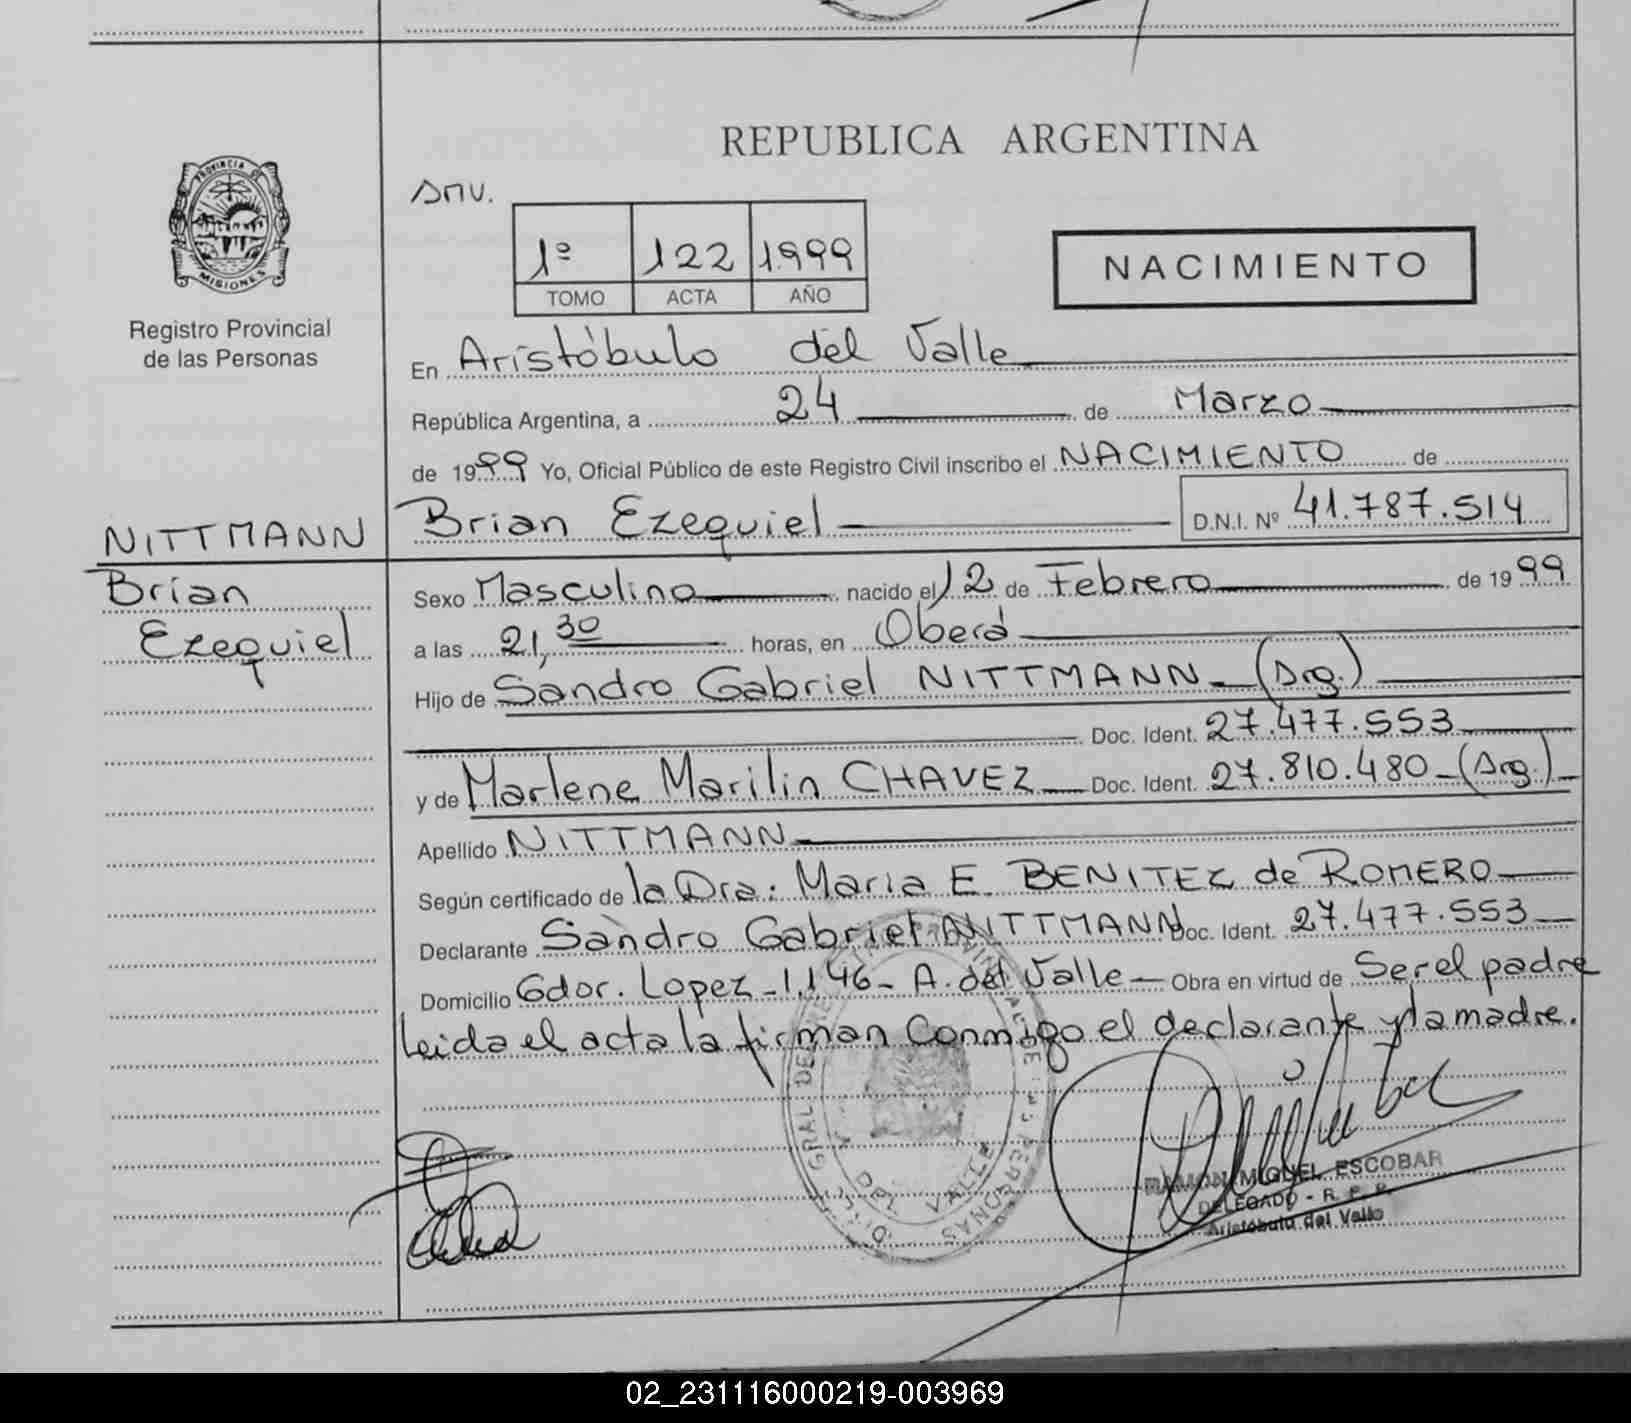 REPUBLICA ARGENTINA
PROVINCIA DE MISIONES
Registro Provincial
de las Personas
1º 122 1999
TOMO ACTA AÑO
NACIMIENTO
En Aristóbulo del Valle
República Argentina, a 24 de Marzo
de 1999 Yo, Oficial Público de este Registro Civil inscribo el NACIMIENTO de
Brian Ezequiel D.N.I. Nº 41.787.514
NITTMANN
Brian
Ezequiel
Sexo Masculino nacido el 12 de Febrero de 1999
a las 21,30 horas, en Oberá
Hijo de Sandro Gabriel NITTMANN - (Arg.)
Doc. Ident. 27.477.553
y de Marlene Marilin CHAVEZ Doc. Ident. 27.810.480 - (Arg.)
Apellido NITTMANN
Según certificado de la Dra: Maria E. BENITEZ de ROMERO
Declarante Sandro Gabriel NITTMANN Doc. Ident. 27.477.553
Domicilio Gdor. Lopez - 1.146 - A. del Valle - Obra en virtud de Ser el padre
Leida el acta la firman Conmigo el declarante y la madre.
RAMON MIGUEL ESCOBAR
DELEGADO - R. P. P.
Aristóbulo del Valle
02_231116000219-003969